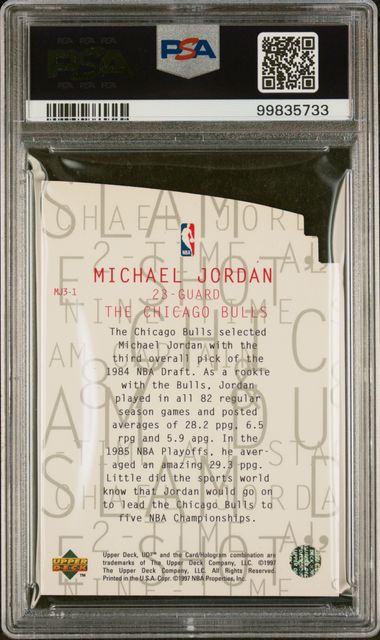 PSA
PSA
99835733
NBA
MICHAEL JORDAN
MJ3-1
23-GUARD
THE CHICAGO BULLS
The Chicago Bulls selected
Michael Jordan with the
third overall pick of the
1984 NBA Draft. As a rookie
with the Bulls, Jordan
played in all 82 regular
season games and posted
averages of 28.2 ppg. 6.5
rpg and 5.9 apg. In the
1985 NBA Playoffs, he aver-
aged an amazing 29.3 ppg.
Little did the sports world
know that Jordan would go on
to lead the Chicago Bulls to
five NBA Championships.
Upper Deck, UD3™ and the Card/Hologram combination are
trademarks of The Upper Deck Company, LLC. ©1997
The Upper Deck Company, LLC. All Rights Reserved.
Printed in the U.S.A. Copr. ©1997 NBA Properties, Inc.
UPPER
DECK
TM